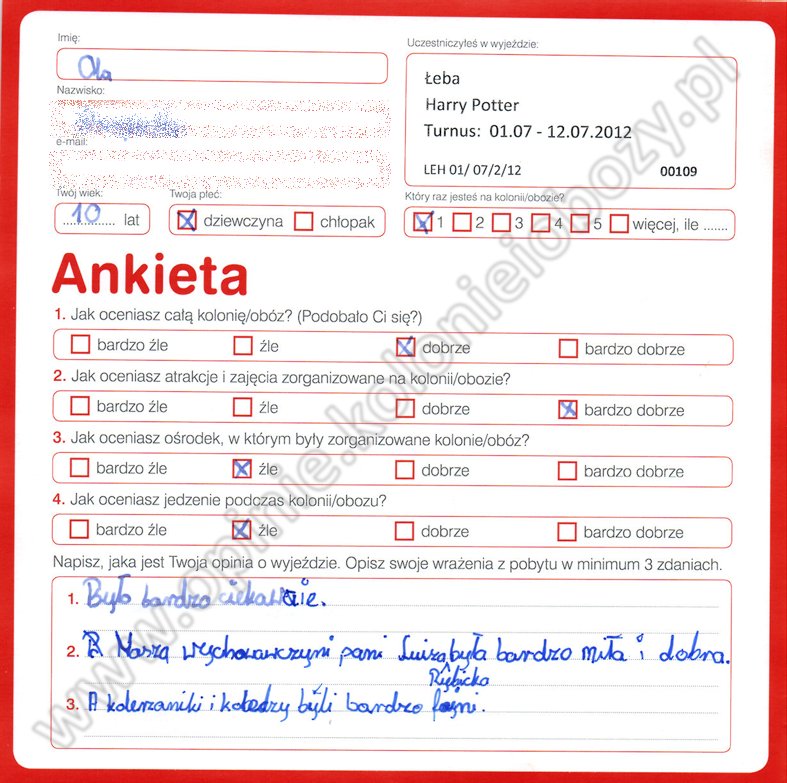 Imię:
Ola
Nazwisko:
e-mail:
Uczestniczyłeś w wyjeździe:
Łeba
Harry Potter
Turnus: 01.07 - 12.07.2012
LEH 01/ 07/2/12 00109
Twój wiek:
10 lat
Twoja płeć:
dziewczyna chłopak
Który raz jesteś na kolonii/obozie?
1 2 3 4 5 więcej, ile .......
Ankieta
1. Jak oceniasz całą kolonię/obóz? (Podobało Ci się?)
bardzo źle źle dobrze bardzo dobrze
2. Jak oceniasz atrakcje i zajęcia zorganizowane na kolonii/obozie?
bardzo źle źle dobrze bardzo dobrze
3. Jak oceniasz ośrodek, w którym były zorganizowane kolonie/obóz?
bardzo źle źle dobrze bardzo dobrze
4. Jak oceniasz jedzenie podczas kolonii/obozu?
bardzo źle źle dobrze bardzo dobrze
Napisz, jaka jest Twoja opinia o wyjeździe. Opisz swoje wrażenia z pobytu w minimum 3 zdaniach.
1. Było bardzo ciekawie.
2. Nasza wychowawczyni pani Luiza była bardzo miła i dobra.
Rybicka
3. A koleżaniki i koledzy byli bardzo fajni.
www.opinie.kolonieiobozy.pl